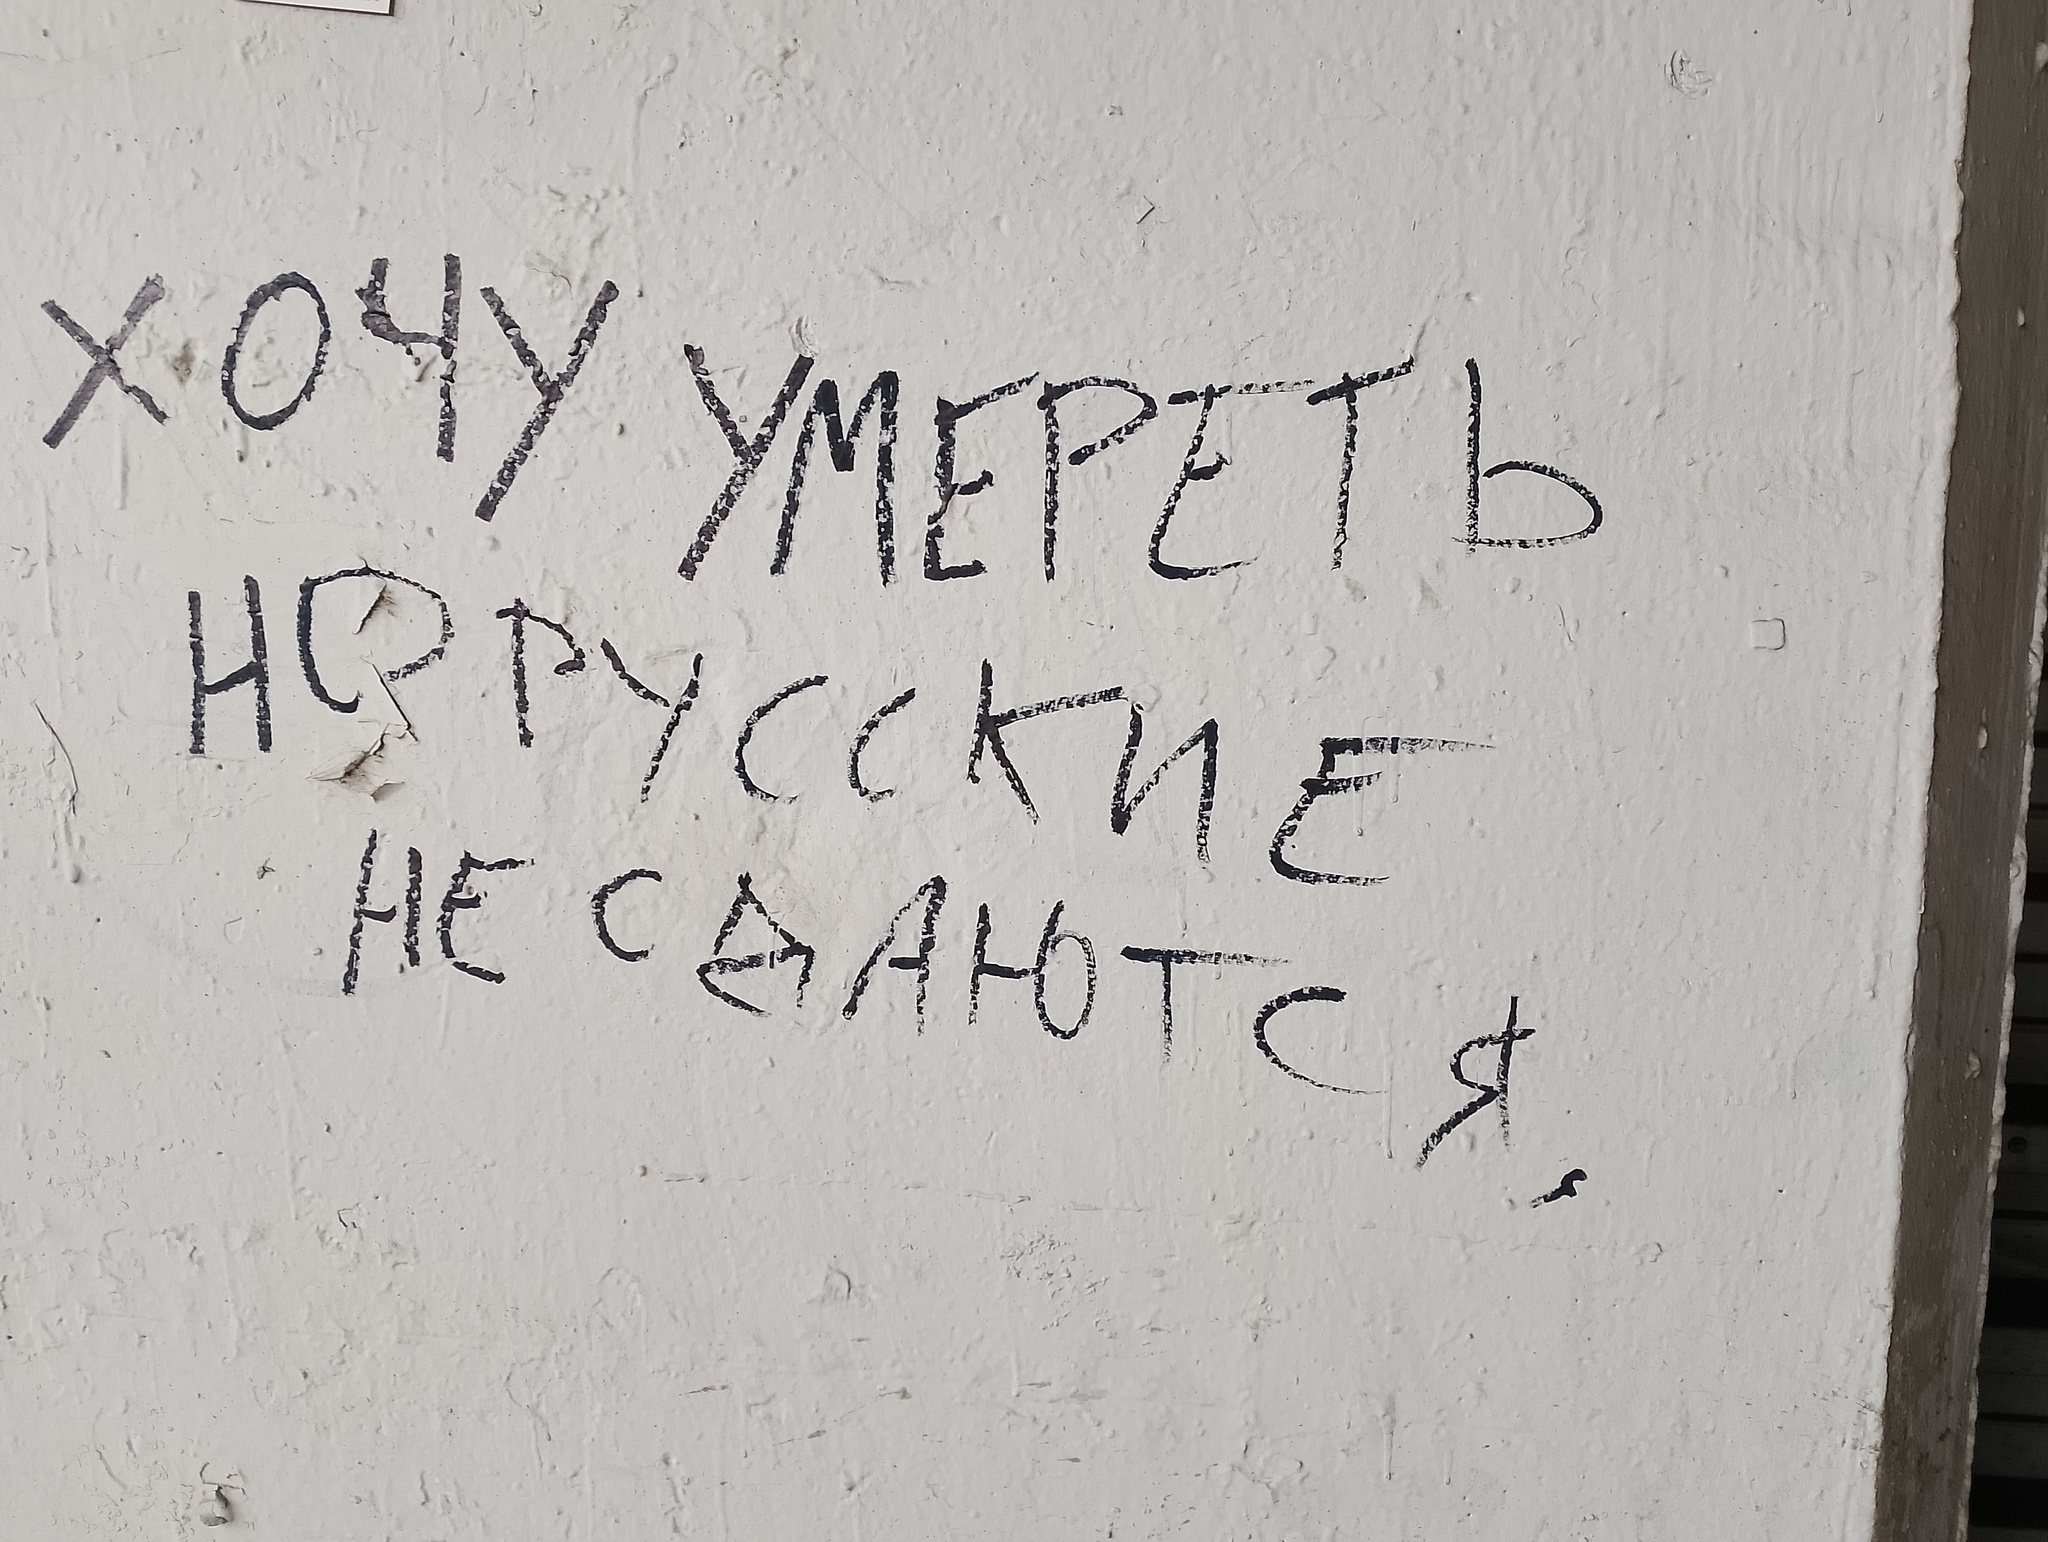 ХОЧУ УМЕРЕТЬ
НО РУССКИЕ
НЕ СДАЮТСЯ,